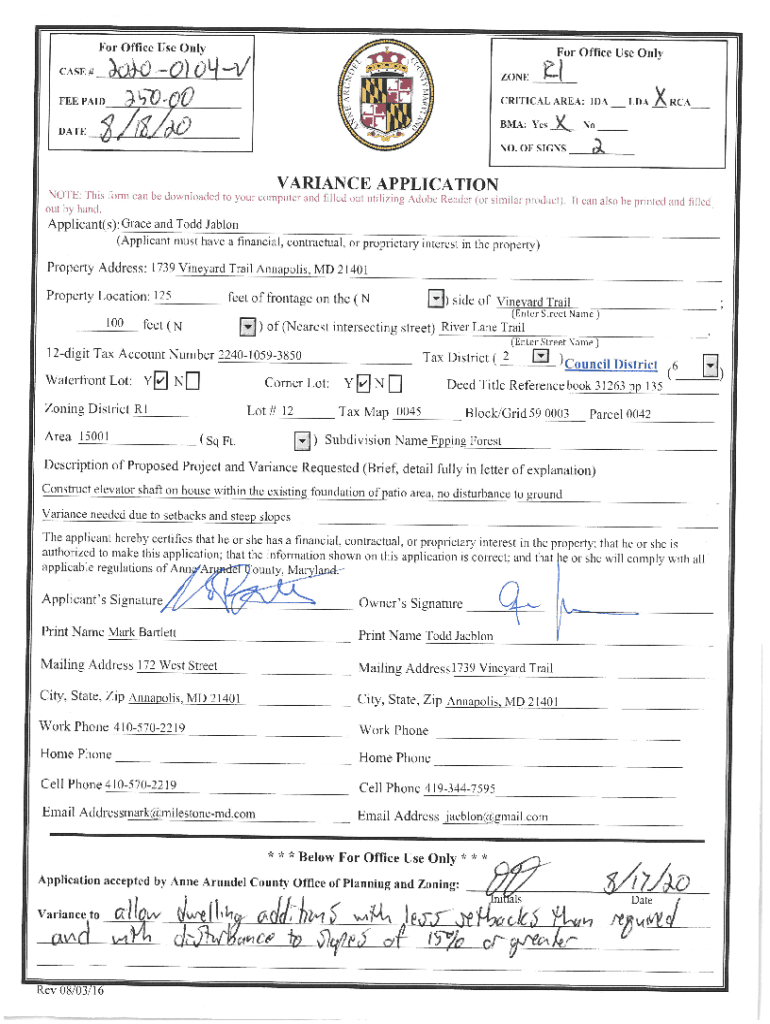 For Office Use Only
CASE # 2020-0104-V
FEE PAID 250.00
DATE 8/18/20
ANNE ARUNDEL COUNTY, MARYLAND
For Office Use Only
ZONE R1
CRITICAL AREA: IDA ___ LDA X RCA ___
BMA: Yes X No ___
NO. OF SIGNS 2
VARIANCE APPLICATION
NOTE: This form can be downloaded to your computer and filled out utilizing Adobe Reader (or similar product). It can also be printed and filled
out by hand.
Applicant(s): Grace and Todd Jablon
(Applicant must have a financial, contractual, or proprietary interest in the property)
Property Address: 1739 Vineyard Trail Annapolis, MD 21401
Property Location: 125 feet of frontage on the ( N ) side of Vineyard Trail ;
(Enter Street Name )
100 feet ( N ) of (Nearest intersecting street) River Lane Trail .
(Enter Street Name )
12-digit Tax Account Number 2240-1059-3850 Tax District ( 2 ) Council District ( 6 )
Waterfront Lot: Y ✔ N Corner Lot: Y ✔ N Deed Title Reference book 31263 pp 135
Zoning District R1 Lot # 12 Tax Map 0045 Block/Grid 59 0003 Parcel 0042
Area 15001 ( Sq Ft. ) Subdivision Name Epping Forest
Description of Proposed Project and Variance Requested (Brief, detail fully in letter of explanation)
Construct elevator shaft on house within the existing foundation of patio area, no disturbance to ground
Variance needed due to setbacks and steep slopes
The applicant hereby certifies that he or she has a financial, contractual, or proprietary interest in the property; that he or she is
authorized to make this application; that the information shown on this application is correct; and that he or she will comply with all
applicable regulations of Anne Arundel County, Maryland.
Applicant's Signature Owner's Signature
Print Name Mark Bartlett Print Name Todd Jaeblon
Mailing Address 172 West Street Mailing Address 1739 Vineyard Trail
City, State, Zip Annapolis, MD 21401 City, State, Zip Annapolis, MD 21401
Work Phone 410-570-2219 Work Phone
Home Phone Home Phone
Cell Phone 410-570-2219 Cell Phone 419-344-7595
Email Address mark@milestone-md.com Email Address jaeblon@gmail.com
* * * Below For Office Use Only * * *
Application accepted by Anne Arundel County Office of Planning and Zoning: 8/17/20
Initials Date
Variance to allow dwelling additions with less setbacks than required
and with disturbance to slopes of 15% or greater
Rev 08/03/16